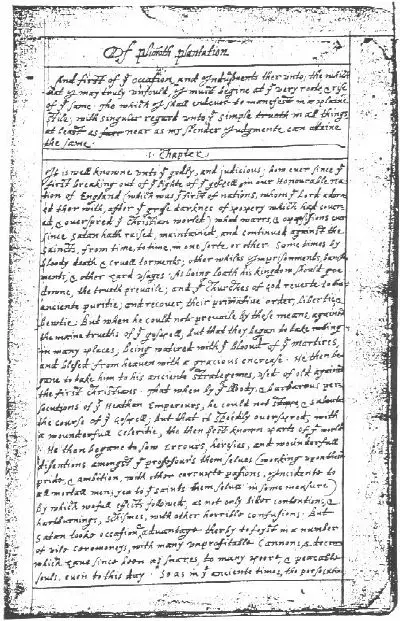 Of plimoth plantation
And first of yᵉ occasion, and Indusments ther unto; the which
that I may truly unfould, I must begine at yᵉ very roote, & rise
of yᵉ same. The which I shall endevor to manefest in a plaine
stile; with singuler regard unto yᵉ simple trueth in all things,
at least as near as my slender Judgmente can attaine
the same.
1. Chapter
It is well knowne unto yᵉ godly, and judicious; how ever since yᵉ
first breaking out of yᵉ lighte of yᵉ gospell, in our Honourable na-
tion of England (which was yᵉ first of nations, whom yᵉ Lord adorn-
ed ther with, after yᵉ grosse darknes of popery which had cover-
ed & overspred yᵉ Christian world) what warrs, & oppossions ever
since Satan hath raised, maintained, and continued against the
Saincts, from time, to time, in one sorte, or other. Some times by
bloody death & cruell torments; other whiles Imprisonments, banish-
ments, & other hard usages. As being loath his kingdom should goe
downe, the trueth prevaile; and yᵉ Churches of God reverte to their
anciente puritie; and recover, their primative order, libertie, &
bewtie. But when he could not prevaile by these means, against
the maine trueths of yᵉ gospell, but that they began to take rooting
in many places; being watered with yᵉ bloud of yᵉ martires,
and blessed from heaven with a gracious encrease. He then be-
gane to take him to his anciente strategemes, used of old against
the first Christians. That when by yᵉ bloody, & barbarous per-
secutions of yᵉ Heathen Emperours, he could not stoppe, & subverte
the course of yᵉ gospell; but that it speedily overspred, with
a wounderfull celeritie, the then best known parts of yᵉ world.
He then begane to sow Errours, heresies, and wounderfull
disentions amongst yᵉ professours them selves (working upon their
pride, & ambition, with other corrupte passions, Incidente to
all mortall men; yea to yᵉ saints them selves in some measure)
By which wofull effects followed; as not only bitter contentions, &
hartburnings, schismes, with other horrible confusions. But
Satan tooke occasion & advantage therby to foyst in a number
of vile Ceremoneys, with many unprofitable Cannons, & decrees
which have since been as snares, to many poore, & peaceable
souls, even to this day. So as in yᵉ anciente times, the persecutions